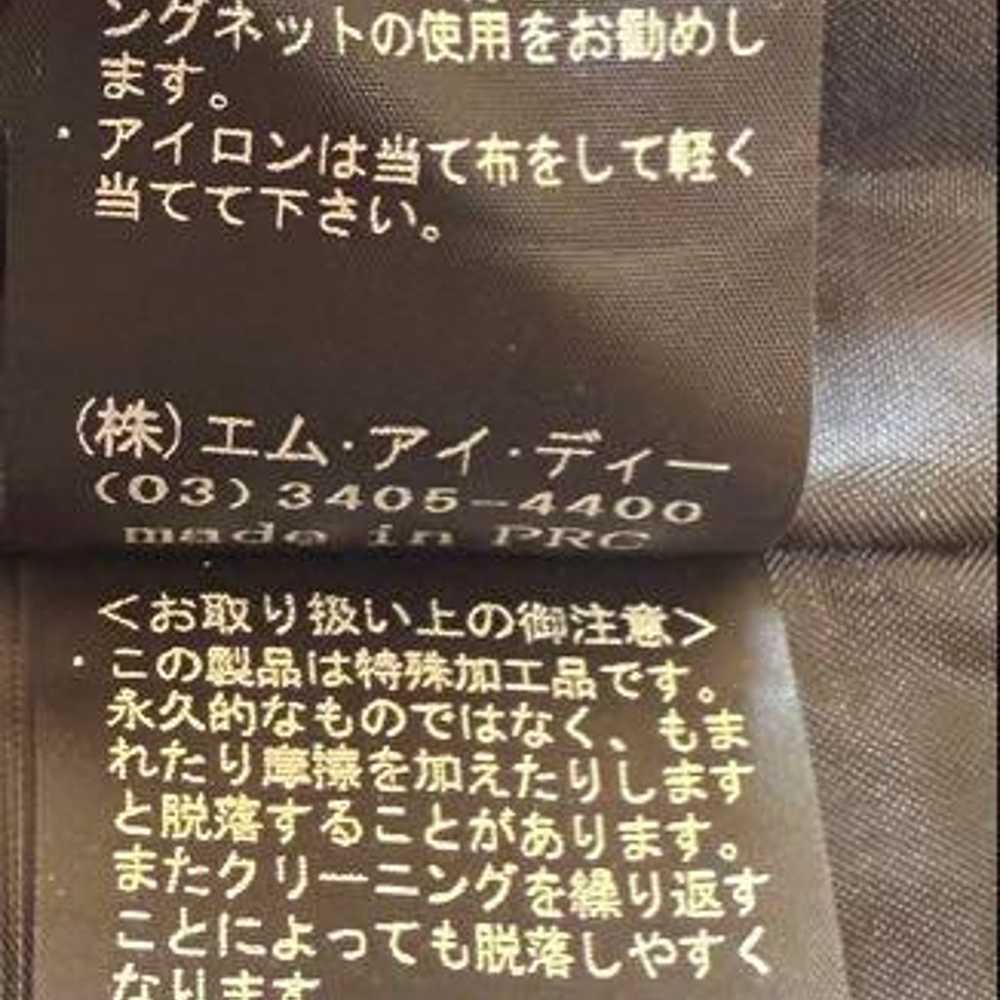 ングネットの使用をお勧めし
ます。
・アイロンは当て布をして軽く
当てて下さい。
(株)エム・アイ・ディー
(03)3405-4400
made in PRC
<お取り扱い上の御注意>
・この製品は特殊加工品です。
永久的なものではなく、もま
れたり摩擦を加えたりします
と脱落することがあります。
またクリーニングを繰り返す
ことによっても脱落しやすく
なります